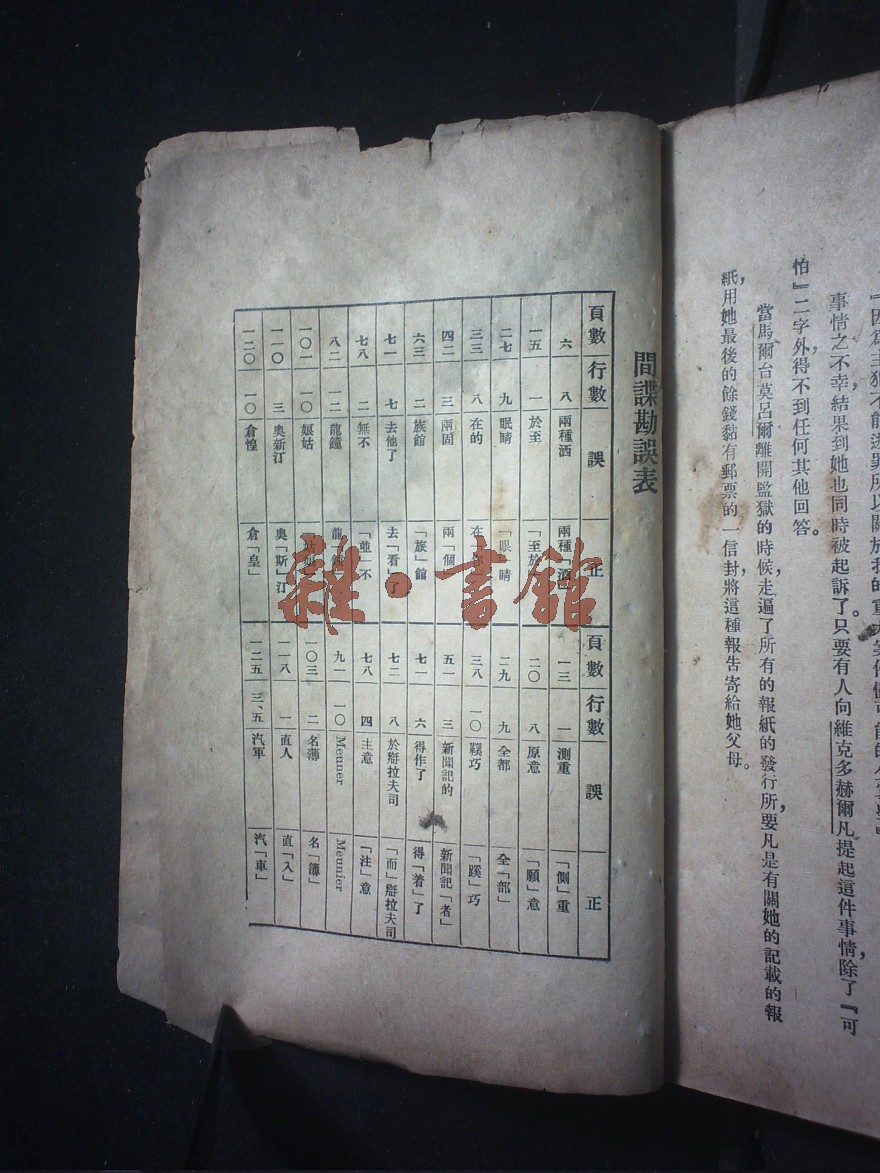 事情之不幸結果到她也同時被起訴了。只要有人向維克多赫爾凡提起這件事情，除了『可
怕』二字外得不到任何其他回答。
當馬爾台莫呂爾離開監獄的時候，走遍了所有的報紙的發行所，要凡是有關她的記載的報
紙，用她最後的餘錢黏有郵票的一信封將這種報告寄給她父母。
間諜勘誤表
頁數 行數 誤 正
六 八 兩種酒 兩種「酒
一五 一 於至 「至於
二七 九 眠睛 「眼」睛
三三 八 在的 在
四二 三 兩固 兩「個
六三 二 旅館 「旅」館
七一 七 去他了 去「看」了
七八 二 無不 「並」不
八二 一二 龍鐘 龍
一〇一 一〇 娘姑
一一〇 三 奧新汀 奧「斯」汀
一二〇 一〇 倉惶 倉「皇」
頁數 行數 誤 正
一三 一 測重 「側」重
二〇 八 原意 「願」意
二九 九 全都 全「部」
三八 一〇 鞵巧 「蹊」巧
五一 三 新聞記的 新聞記「者」
七一 六 得作了 得「着」了
七二 八 於辯拉夫司 「而」辯拉夫司
七八 四 主意 「注」意
九一 一〇 Meuner Meunier
一〇三 二 名薄 名「簿」
一一八 一 直人 直「入」
一二五 三、五 汽軍 汽「車」
雜·書館